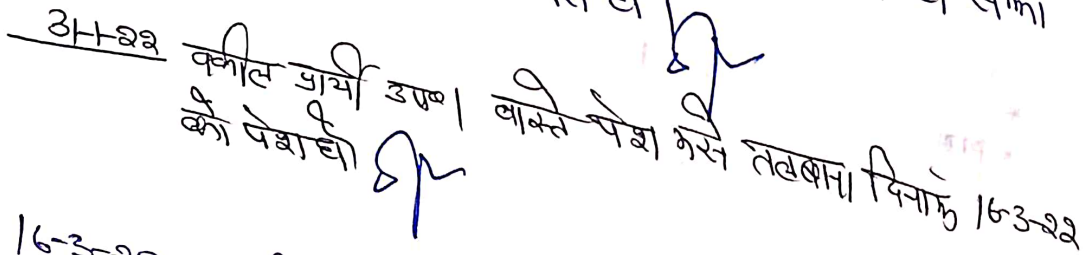 31-1-22 वकील प्रार्थी उप०। वास्ते पेश करने तलबाना दिनांक 16-3-22
को पेश हो
16-3-22